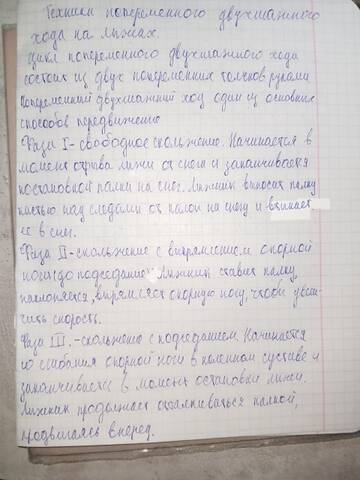 Техники попеременного двухшажного
хода на лыжах.
Цикл попеременного двухшажного хода
состоит из двух попеременных толчков руками
Попеременный двухшажный ход один из основных
способов передвижения
Фаза I - свободное скольжение. Начинается в
момент отрыва лыжи от снега и заканчивается
постановкой палки на снег. Лыжник выносит палку
кистью над следами от палок на снегу и втыкает
её в снег.
Фаза II - скольжение с выпрямлением опорной
ноги (до подседания. Лыжник ставит палку,
наклоняется, выпрямляет опорную ногу, чтобы увели-
чить скорость.
Фаза III. - скольжение с подседанием. Начинается
со сгибания опорной ноги в коленном суставе и
заканчивается в момент остановки лыжи.
Лыжник продолжает отталкиваться палкой,
продвигаясь вперед.